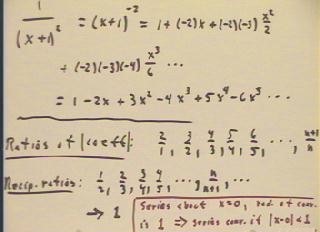 1/(x+1)² = (x+1)⁻² = 1 + (-2)x + (-2)(-3) x²/2
+ (-2)(-3)(-4) x³/6 ...
= 1 - 2x + 3x² - 4x³ + 5x⁴ - 6x⁵ ...
Ratios of |coeff|: 2/1, 3/2, 4/3, 5/4, 6/5, ..., n+1/n
Recip. ratios: 1/2, 2/3, 3/4, 4/5, ..., n/n+1, ...
⇒ 1
Series about x=0, rad. of conv.
is 1 ⇒ series conv. if |x-0|<1